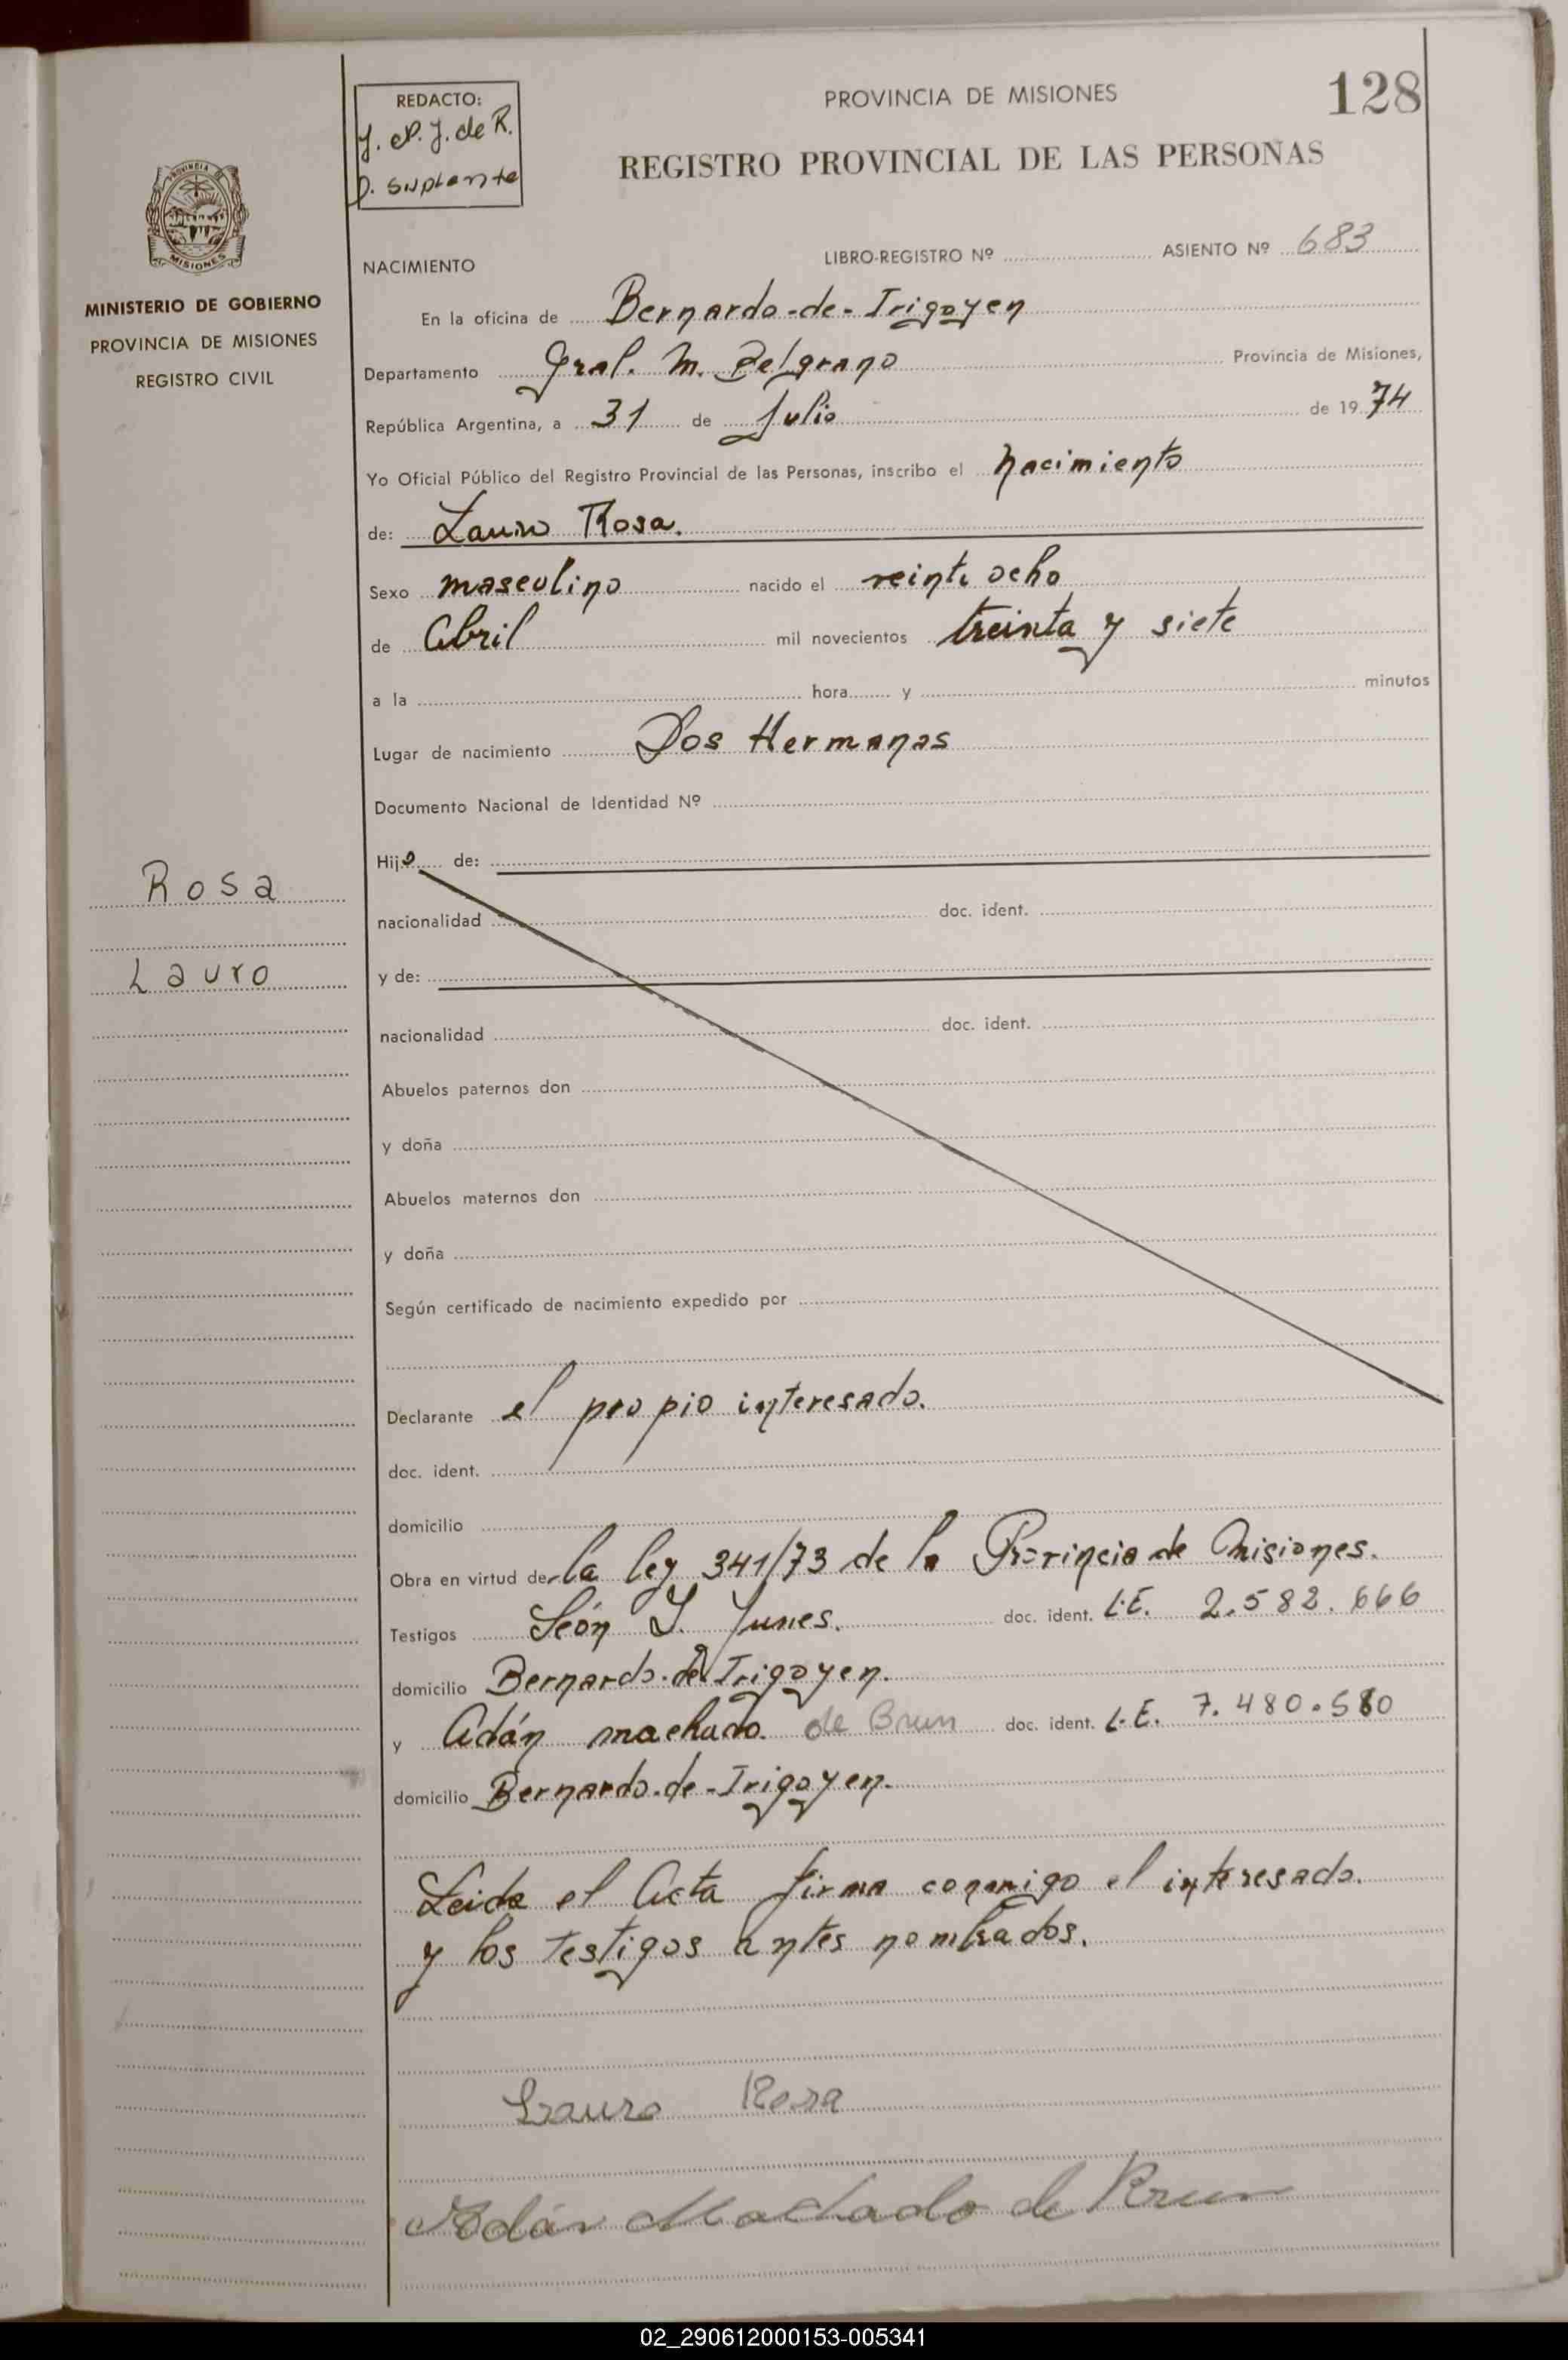 128
REDACTO:
J. P. J. de R.
D. Suplente
PROVINCIA DE MISIONES
REGISTRO PROVINCIAL DE LAS PERSONAS
PROVINCIA DE
MISIONES
MINISTERIO DE GOBIERNO
PROVINCIA DE MISIONES
REGISTRO CIVIL
NACIMIENTO LIBRO-REGISTRO Nº ASIENTO Nº 683
En la oficina de Bernardo-de-Irigoyen
Departamento Gral. M. Belgrano Provincia de Misiones,
República Argentina, a 31 de Julio de 1974
Yo Oficial Público del Registro Provincial de las Personas, inscribo el nacimiento
de: Lauro Rosa.
Sexo masculino nacido el veinti ocho
de Abril mil novecientos treinta y siete
a la hora y minutos
Lugar de nacimiento Dos Hermanas
Documento Nacional de Identidad Nº
Hijo de:
Rosa
nacionalidad doc. ident.
Lauro
y de:
nacionalidad doc. ident.
Abuelos paternos don
y doña
Abuelos maternos don
y doña
Según certificado de nacimiento expedido por
Declarante el propio interesado.
doc. ident.
domicilio
Obra en virtud de la ley 341/73 de la Provincia de Misiones.
Testigos León J. Junes. doc. ident. L.E. 2.582.666
domicilio Bernardo-de Irigoyen.
y Adán machado de Brun doc. ident. L.E. 7.480.580
domicilio Bernardo-de-Irigoyen.
Leida el Acta firma conmigo el interesado.
y los testigos antes nombrados.
Lauro Rosa
Adán Machado de Brun
02_290612000153-005341